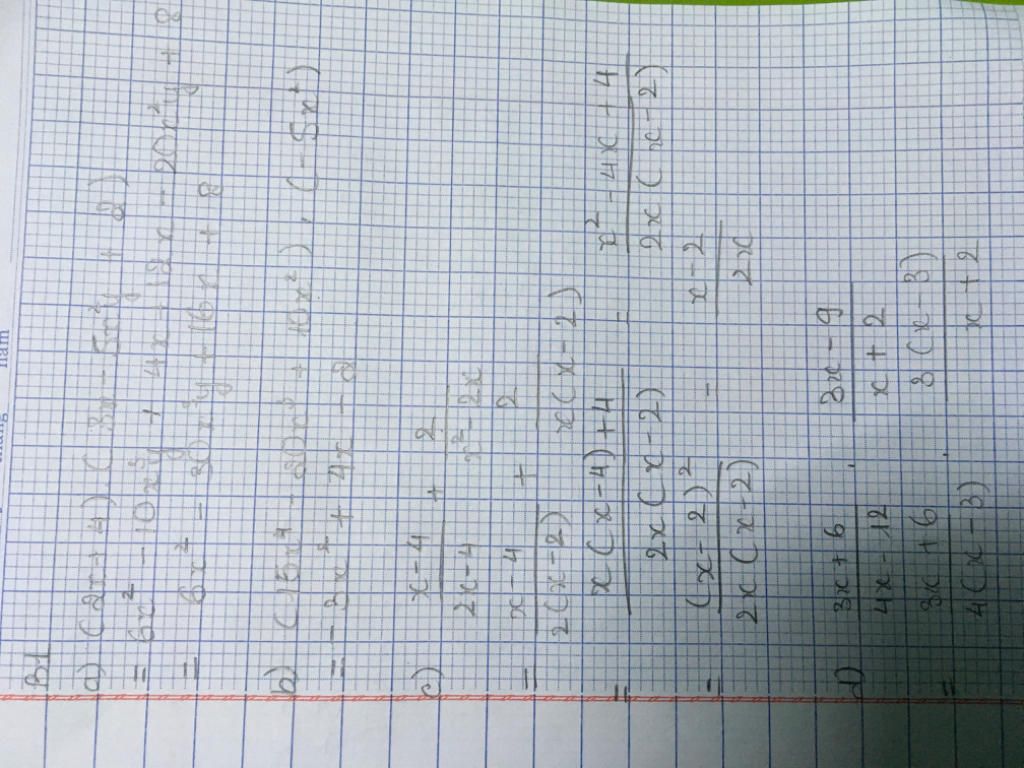 năm
B1
a) (2x+4).(3x - 5x²y + 2)
= 6x² - 10x³y + 4x + 12x - 20x²y + 8
= 6x² - 30x³y + 16x + 8
b) (15x⁴ - 20x³ + 10x²) : (-5x²)
= -3x² + 4x - 2
c) (x-4)/(2x-4) + 2/(x²-2x)
= (x-4)/(2(x-2)) + 2/(x(x-2))
= (x(x-4)+4)/(2x(x-2)) = (x²-4x+4)/(2x(x-2))
= (x-2)²/(2x(x-2)) = (x-2)/(2x)
d) (3x+6)/(4x-12) . (3x-9)/(x+2)
= (3x+6)/(4(x-3)) . (3(x-3))/(x+2)